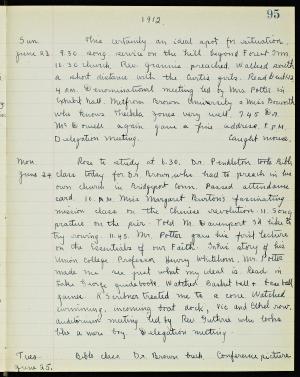 1912
95
Sun. This certainly an ideal spot for situation.
June 23. 9.30 song service on the hill beyond Forest Inn.
10.30 church, Rev. preached. Walked south
a short distance with the Curtis girls. Read
4 P.M. Denominational meeting led by Mrs Potter in
hall. Met from Brown University a Miss
who knows Thekla Jones very well. 7.45 Dr.
Mc Dowell again gave a fine address. 9 P.M.
Delegation meeting. Caught mouse.
Mon. Rose to study at 6.30. Dr. Pendleton took Bible
June 24. class today for Dr. Brown, who had to preach in his
own church in Bridgeport Conn. Passed attendance
card. 10. A.M. Miss Margaret Burton's fascinating
mission class on the Chinese revolution. 11. Song
practice on the pier. Told M. Davenport I'd like to
try rowing. 11.45. Mr. Potter gave his first lecture
on the Essentials of our Faith. story of his
Union College Professor Henry Whitehorn. Mr. Potter
made me see just what my ideal is. Read in
Lake George guidebook. Watched Basket ball & base ball
game. treated me to a cone. Watched
swimming, incoming boat dock, Vic and Ethel row,
auditorium meeting led by Rev. Guthrie who looks
like a mere boy. Delegation meeting.
Tues. Bible class Dr Brown back. Conference picture
June 25.